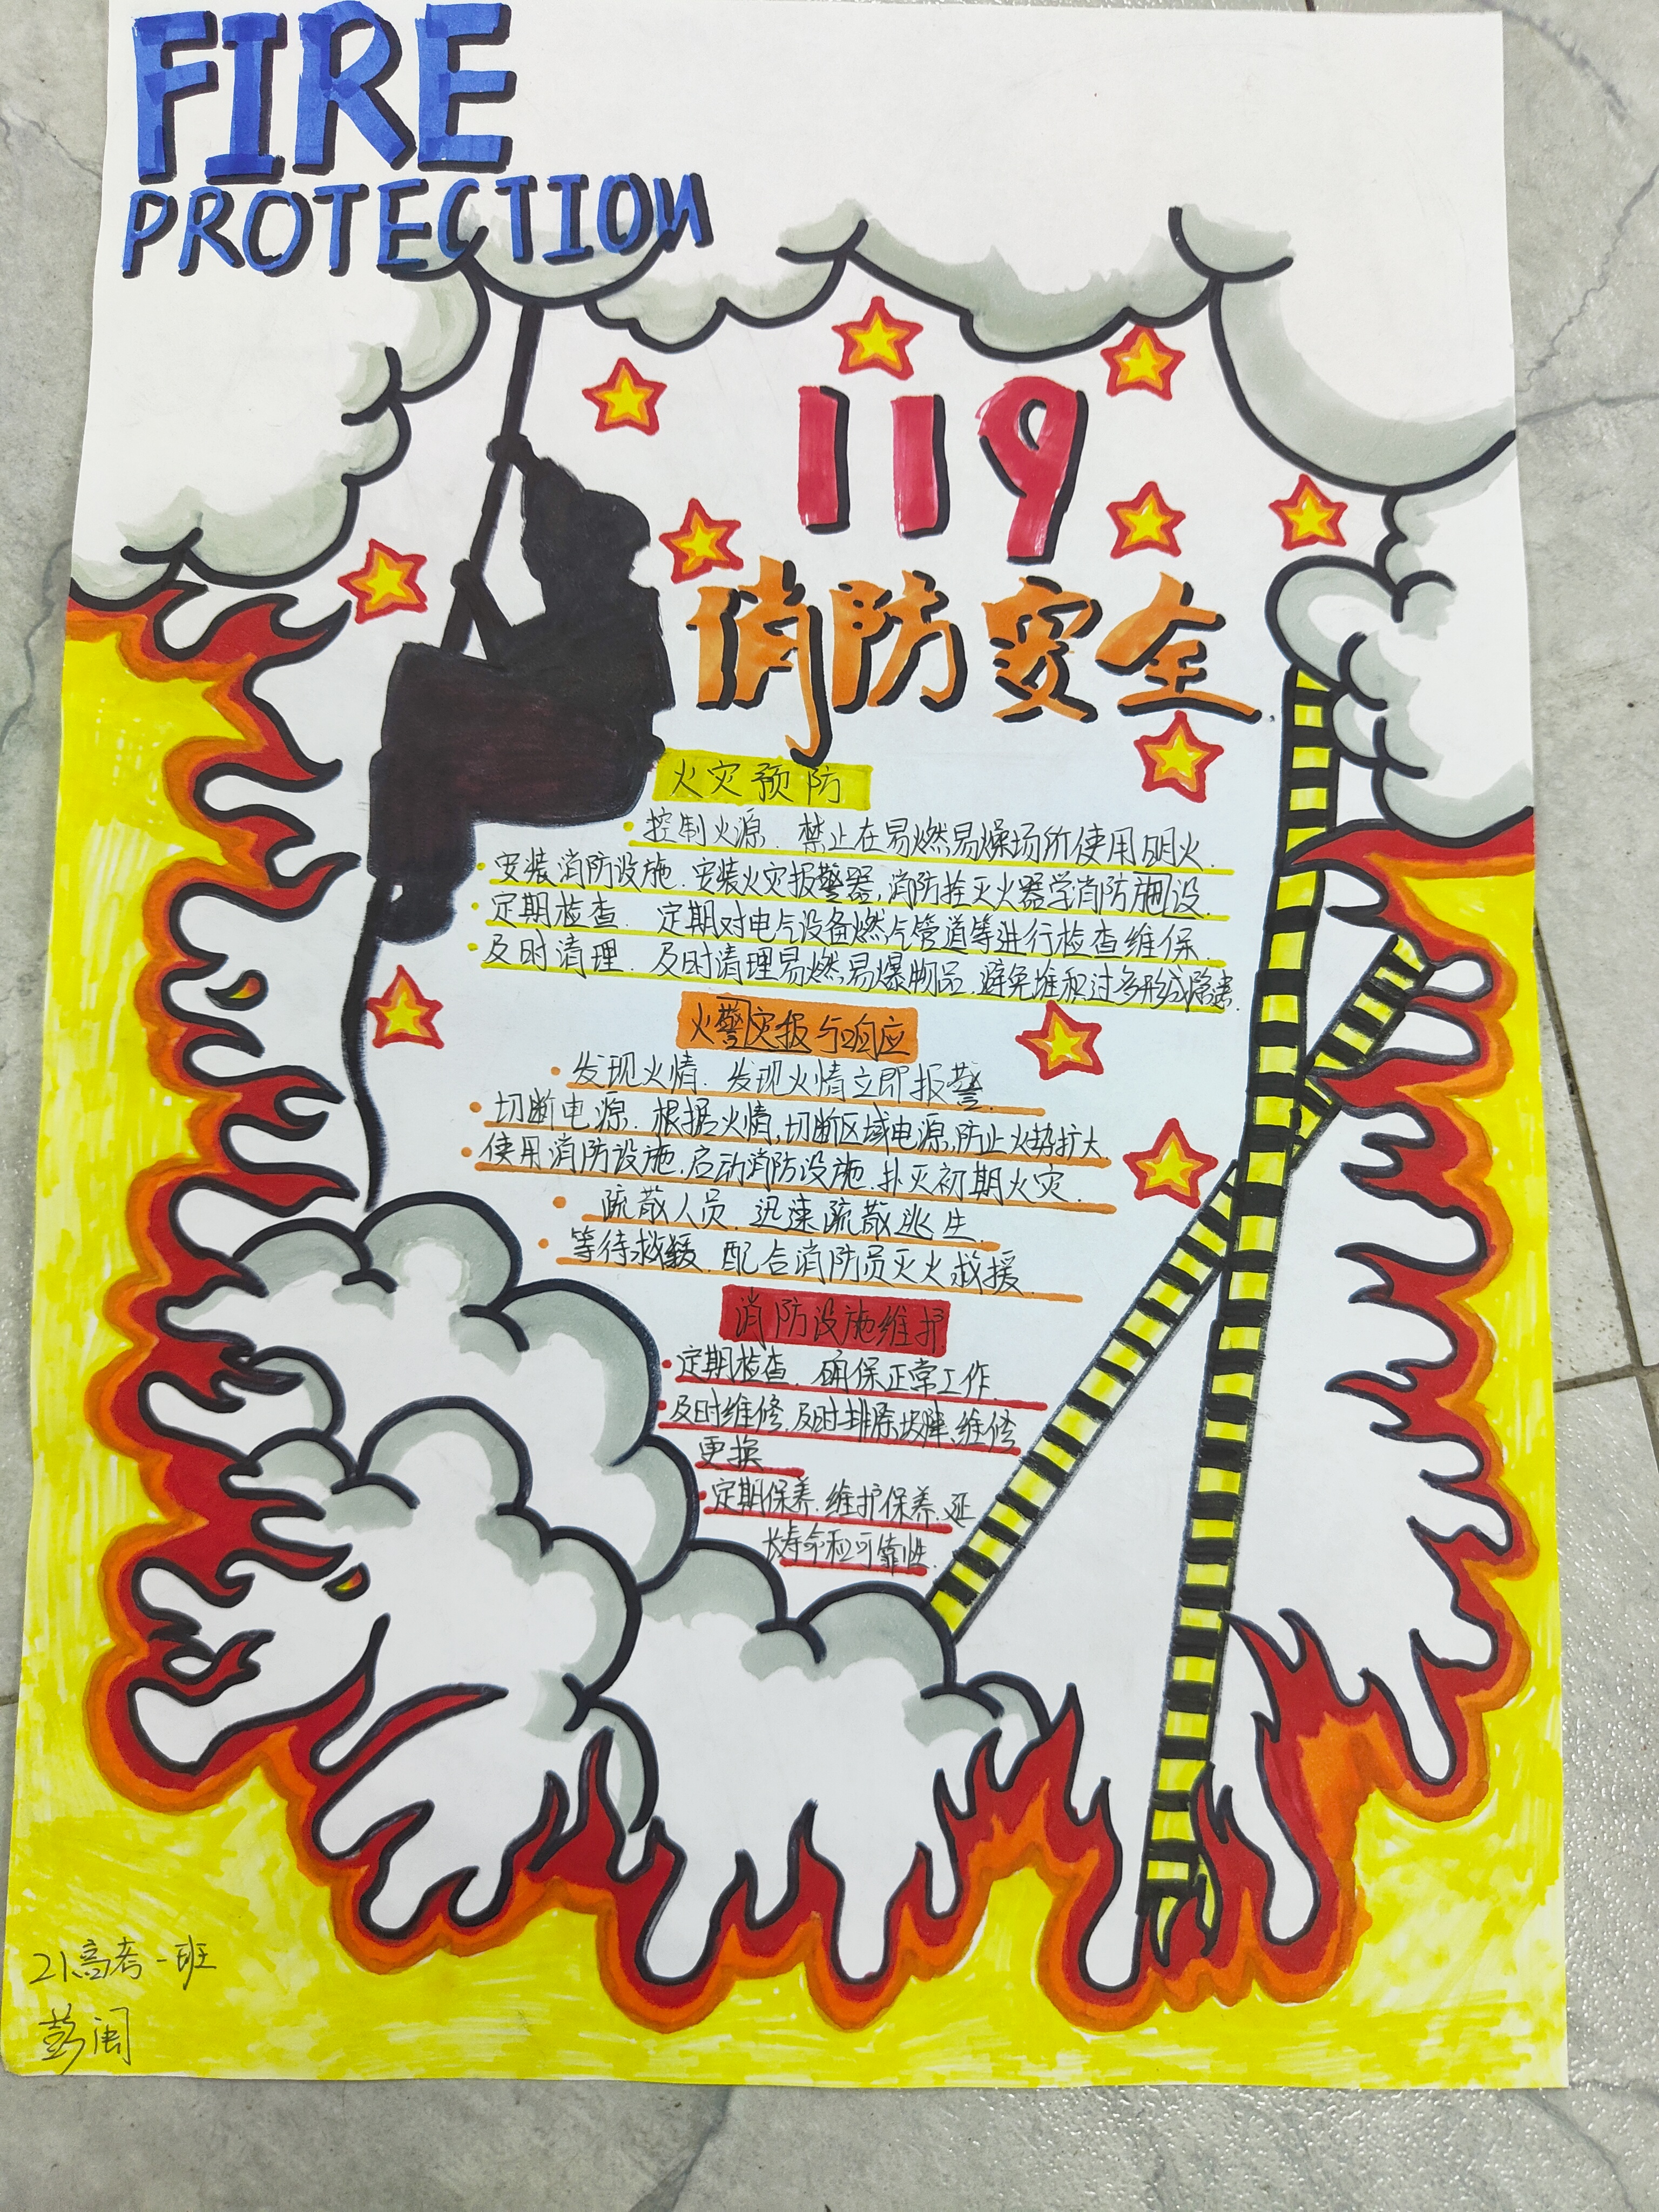 FIRE
PROTECTION
119
消防安全
火灾预防
控制火源. 禁止在易燃易燥场所使用明火.
安装消防设施.安装火灾报警器,消防拴灭火器学消防施设.
定期检查. 定期对电气设备燃气管道等进行检查维保.
及时清理. 及时清理易燃易爆物品.避免堆积过多形成隐患.
火警灾报与响应
发现火情. 发现火情立即报警.
切断电源. 根据火情,切断区域电源,防止火势扩大
使用消防设施.启动消防设施.扑灭初期火灾.
疏散人员. 迅速疏散逃生.
等待救援. 配合消防员灭火救援.
消防设施维护
定期检查. 确保正常工作.
及时维修.及时排除故障,维修
更换
定期保养.维护保养.延
长寿命和可靠性.
21高考一班